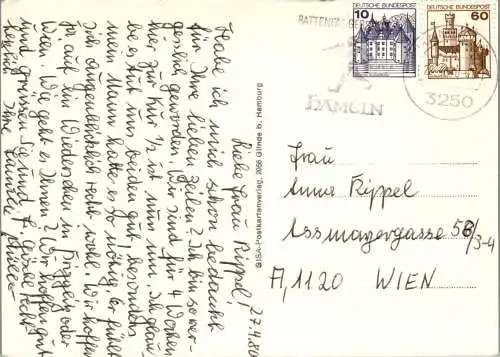 27.4.80
Liebe Frau Rippel!
Habe ich mich schon bedankt
für Ihre lieben Zeilen? Ich bin so ver-
gesslich geworden. Wir sind für 4 Wochen
hier zur Kur 1/2 ist nun um. Ich glau-
be es tut uns beiden gut, besonders
mein Mann hatte es so nötig. Er fühlt
sich augenblicklich recht wohl. Wir hoffen
ja auf ein Wiedersehen in oder
Wien. Wie geht es Ihnen? Wir hoffen gut
und grüssen Sie und Fr. recht
herzlich Ihre Familie Müller
© ISA-Postkartenverlag, 2056 Glinde b. Hamburg
RATTENFÄNGER
HAMELN
DEUTSCHE BUNDESPOST
10
DEUTSCHE BUNDESPOST
60
3250
Frau
Anna Rippel
Assmayergasse 58/3-4
A, 1120 WIEN